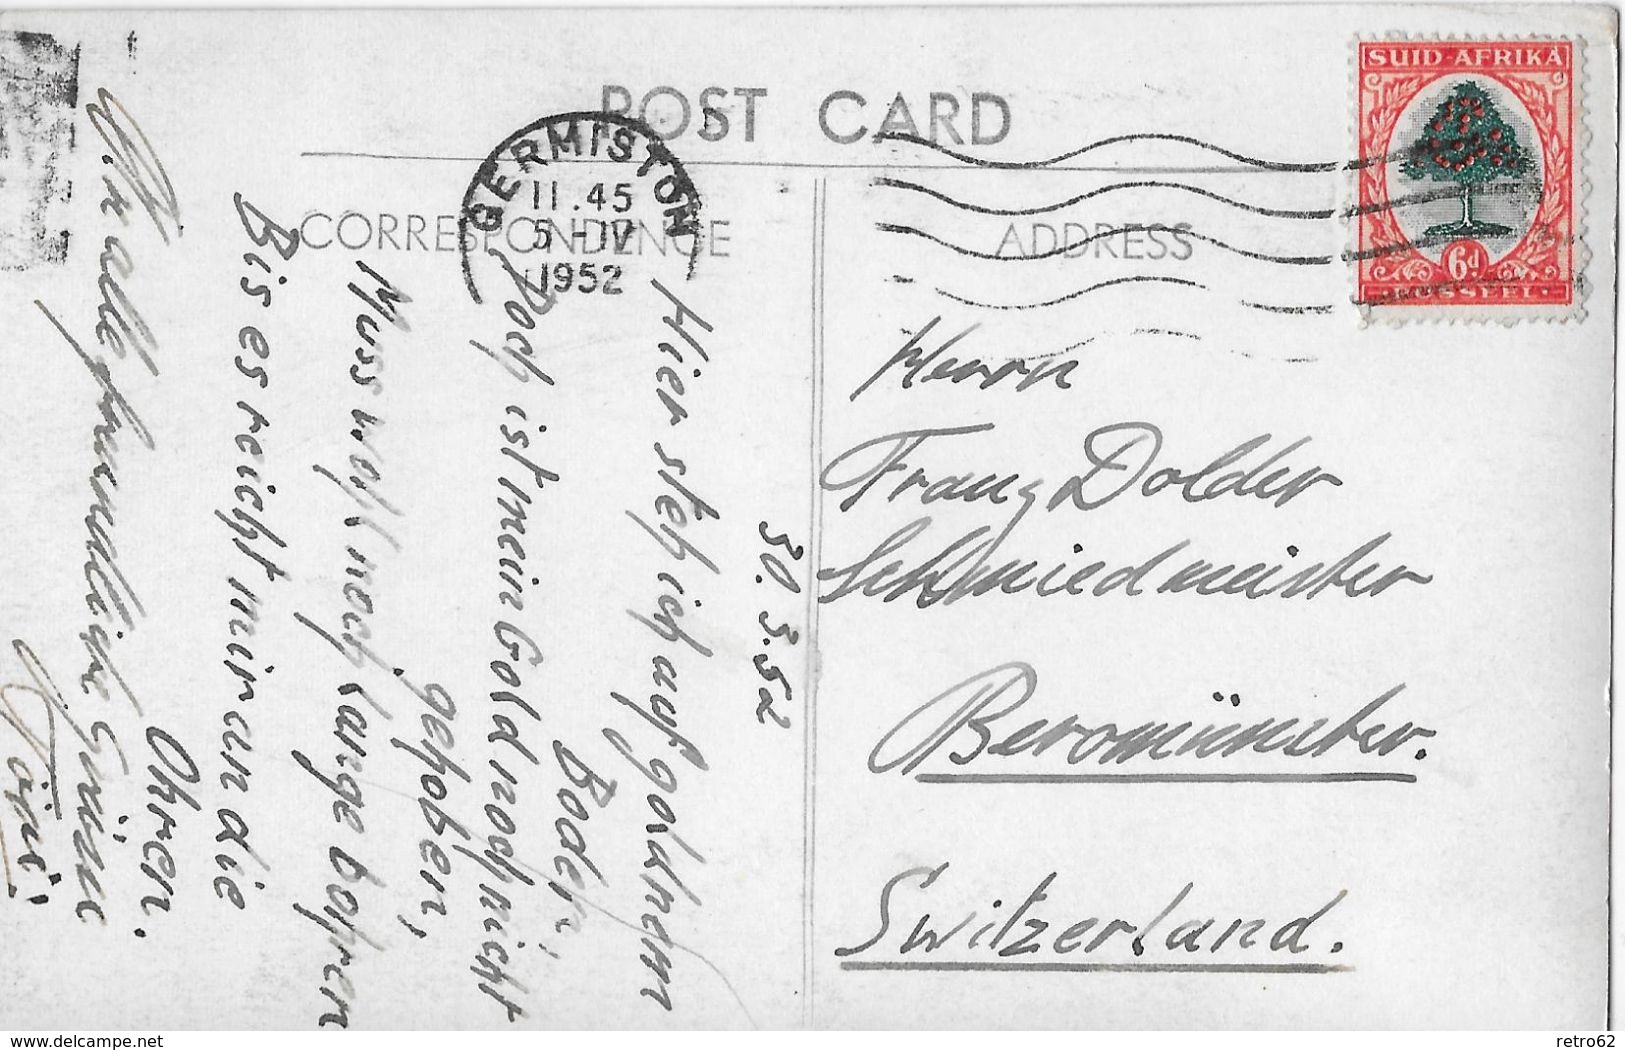 POST CARD
CORRESPONDENCE
ADDRESS
GERMISTON
11.45
5 - IV
1952
SUID-AFRIKA
6d
POSSEEL
30.3.52
Hier steh ich auf goldnem
Boden,
Doch ist mein Gold noch nicht
gehoben,
Muss wohl noch lange bohren
Bis es reicht mir an die
Ohren.
Wir alle freundliche Grüsse
Töni.
Herrn
Franz Dolder
Schmiedmeister
Beromünster.
Switzerland.
delcampe.net
retro62